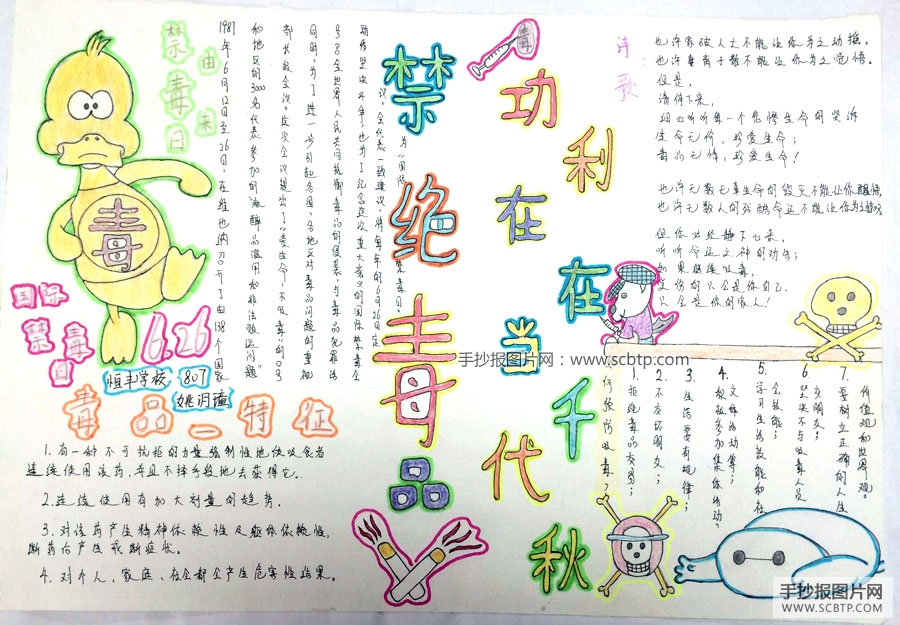 禁毒日
由来
1987年6月12日至26日,在维也纳召开了由138个国家
和地区的3000名代表参加的"麻醉品滥用和非法贩运问题"
部长级会议。这次会议提出了"爱生命,不吸毒"的口号
同时,为了进一步引起各国、各地区对毒品问题的重视
号召全世界人民共同抵御毒品的侵袭,与毒品犯罪活
动作坚决斗争,也为了纪念这次
议,全代表一致建议,将每年的6月26日定
为"国际禁毒日"。
毒
国际
禁毒
日
6.26
恒丰学校 807
毒品_特征
1.有一种不可抗拒的力量强制性地使吸食者
连续使用该药,并且不择手段地去获得它。
2.连续使用有加大剂量的趋势。
3.对该药产生精神依赖性及躯体依赖性,
断药后产生戒断症状。
4.对个人、家庭、社会都会产生危害性结果。
禁绝毒品
功在当代
利在千秋
毒
诗歌
也许家破人亡不能让你为之动摇,
也许妻离子散不能让你为之觉悟。
但是,
请停下来,
细心听听每一个忏悔生命的哭诉
生命无价,珍爱生命;
毒品无情,珍爱生命!
也许无数无辜生命的毁灭不能让你醒悟,
也许无数人的残酷命运不能让你为之
但你必须静下心来,
听听命运之神的劝告;
如果继续吸毒,
受伤的只会是你自己,
只会是你的家人!
何预防吸毒?
1.拒绝毒品交易;
2.不交坏朋友;
3.生活要有规律;
4.积极参加集体活动、
文体活动等;
5.学习生活技能和社
会技能;
6.坚决不与吸毒人员
交朋友;
7.要树立正确的人生
价值观和世界观。
手抄报图片网:www.scbtp.com
手抄报图片网
WWW.SCBTP.COM